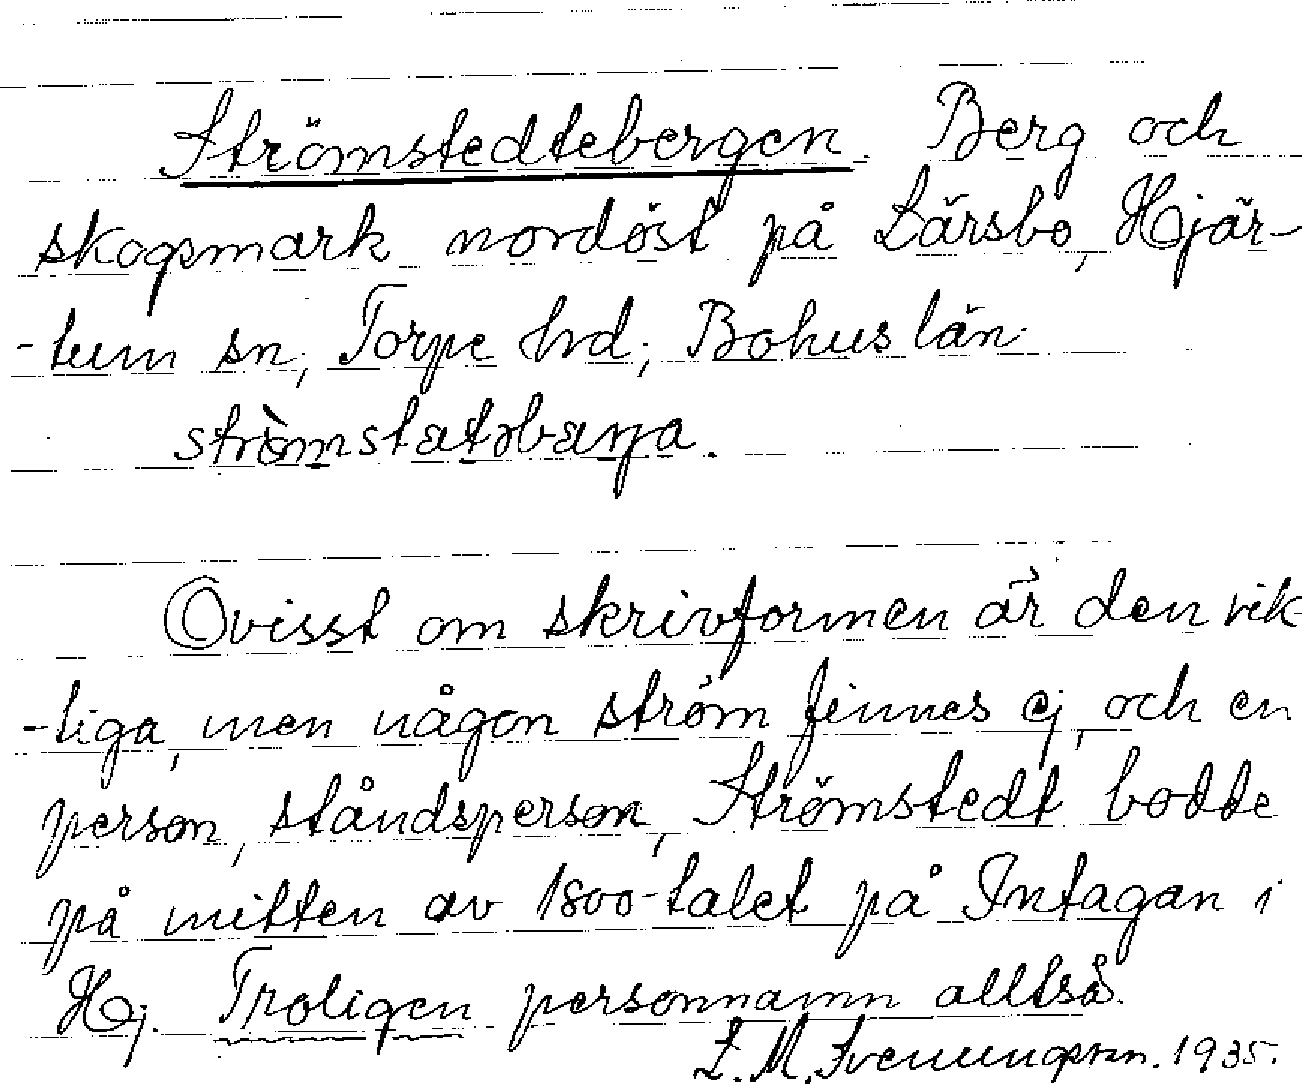 Strömstedtebergen. Berg och
skogsmark nordöst på Lärsbo, Hjär-
-tum sn, Torpe hd, Bohuslän.
strömstatsbaŋa.
Ovisst om skrivformen är den rik-
-tiga, men någon ström finnes ej, och en
person, ståndsperson, Strömstedt bodde
på mitten av 1800-talet på Intagan i
Hj. Troligen personnamn alltså.
L. M. Svenungsson. 1935.